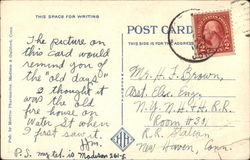 THIS SPACE FOR WRITING
POST CARD
THIS SIDE IS FOR THE ADDRESS
The picture on
this card would
remind you of
the "old days"
I thought it
was the old
fire house on
Water St when
I first saw it.
P.S. my tel. is Madison
Mr. H. F. Brown,
Asst. Elec. Engr.
N.Y. N.H. + H. R.R.
Room #
R.R. Station
New Haven, Conn.